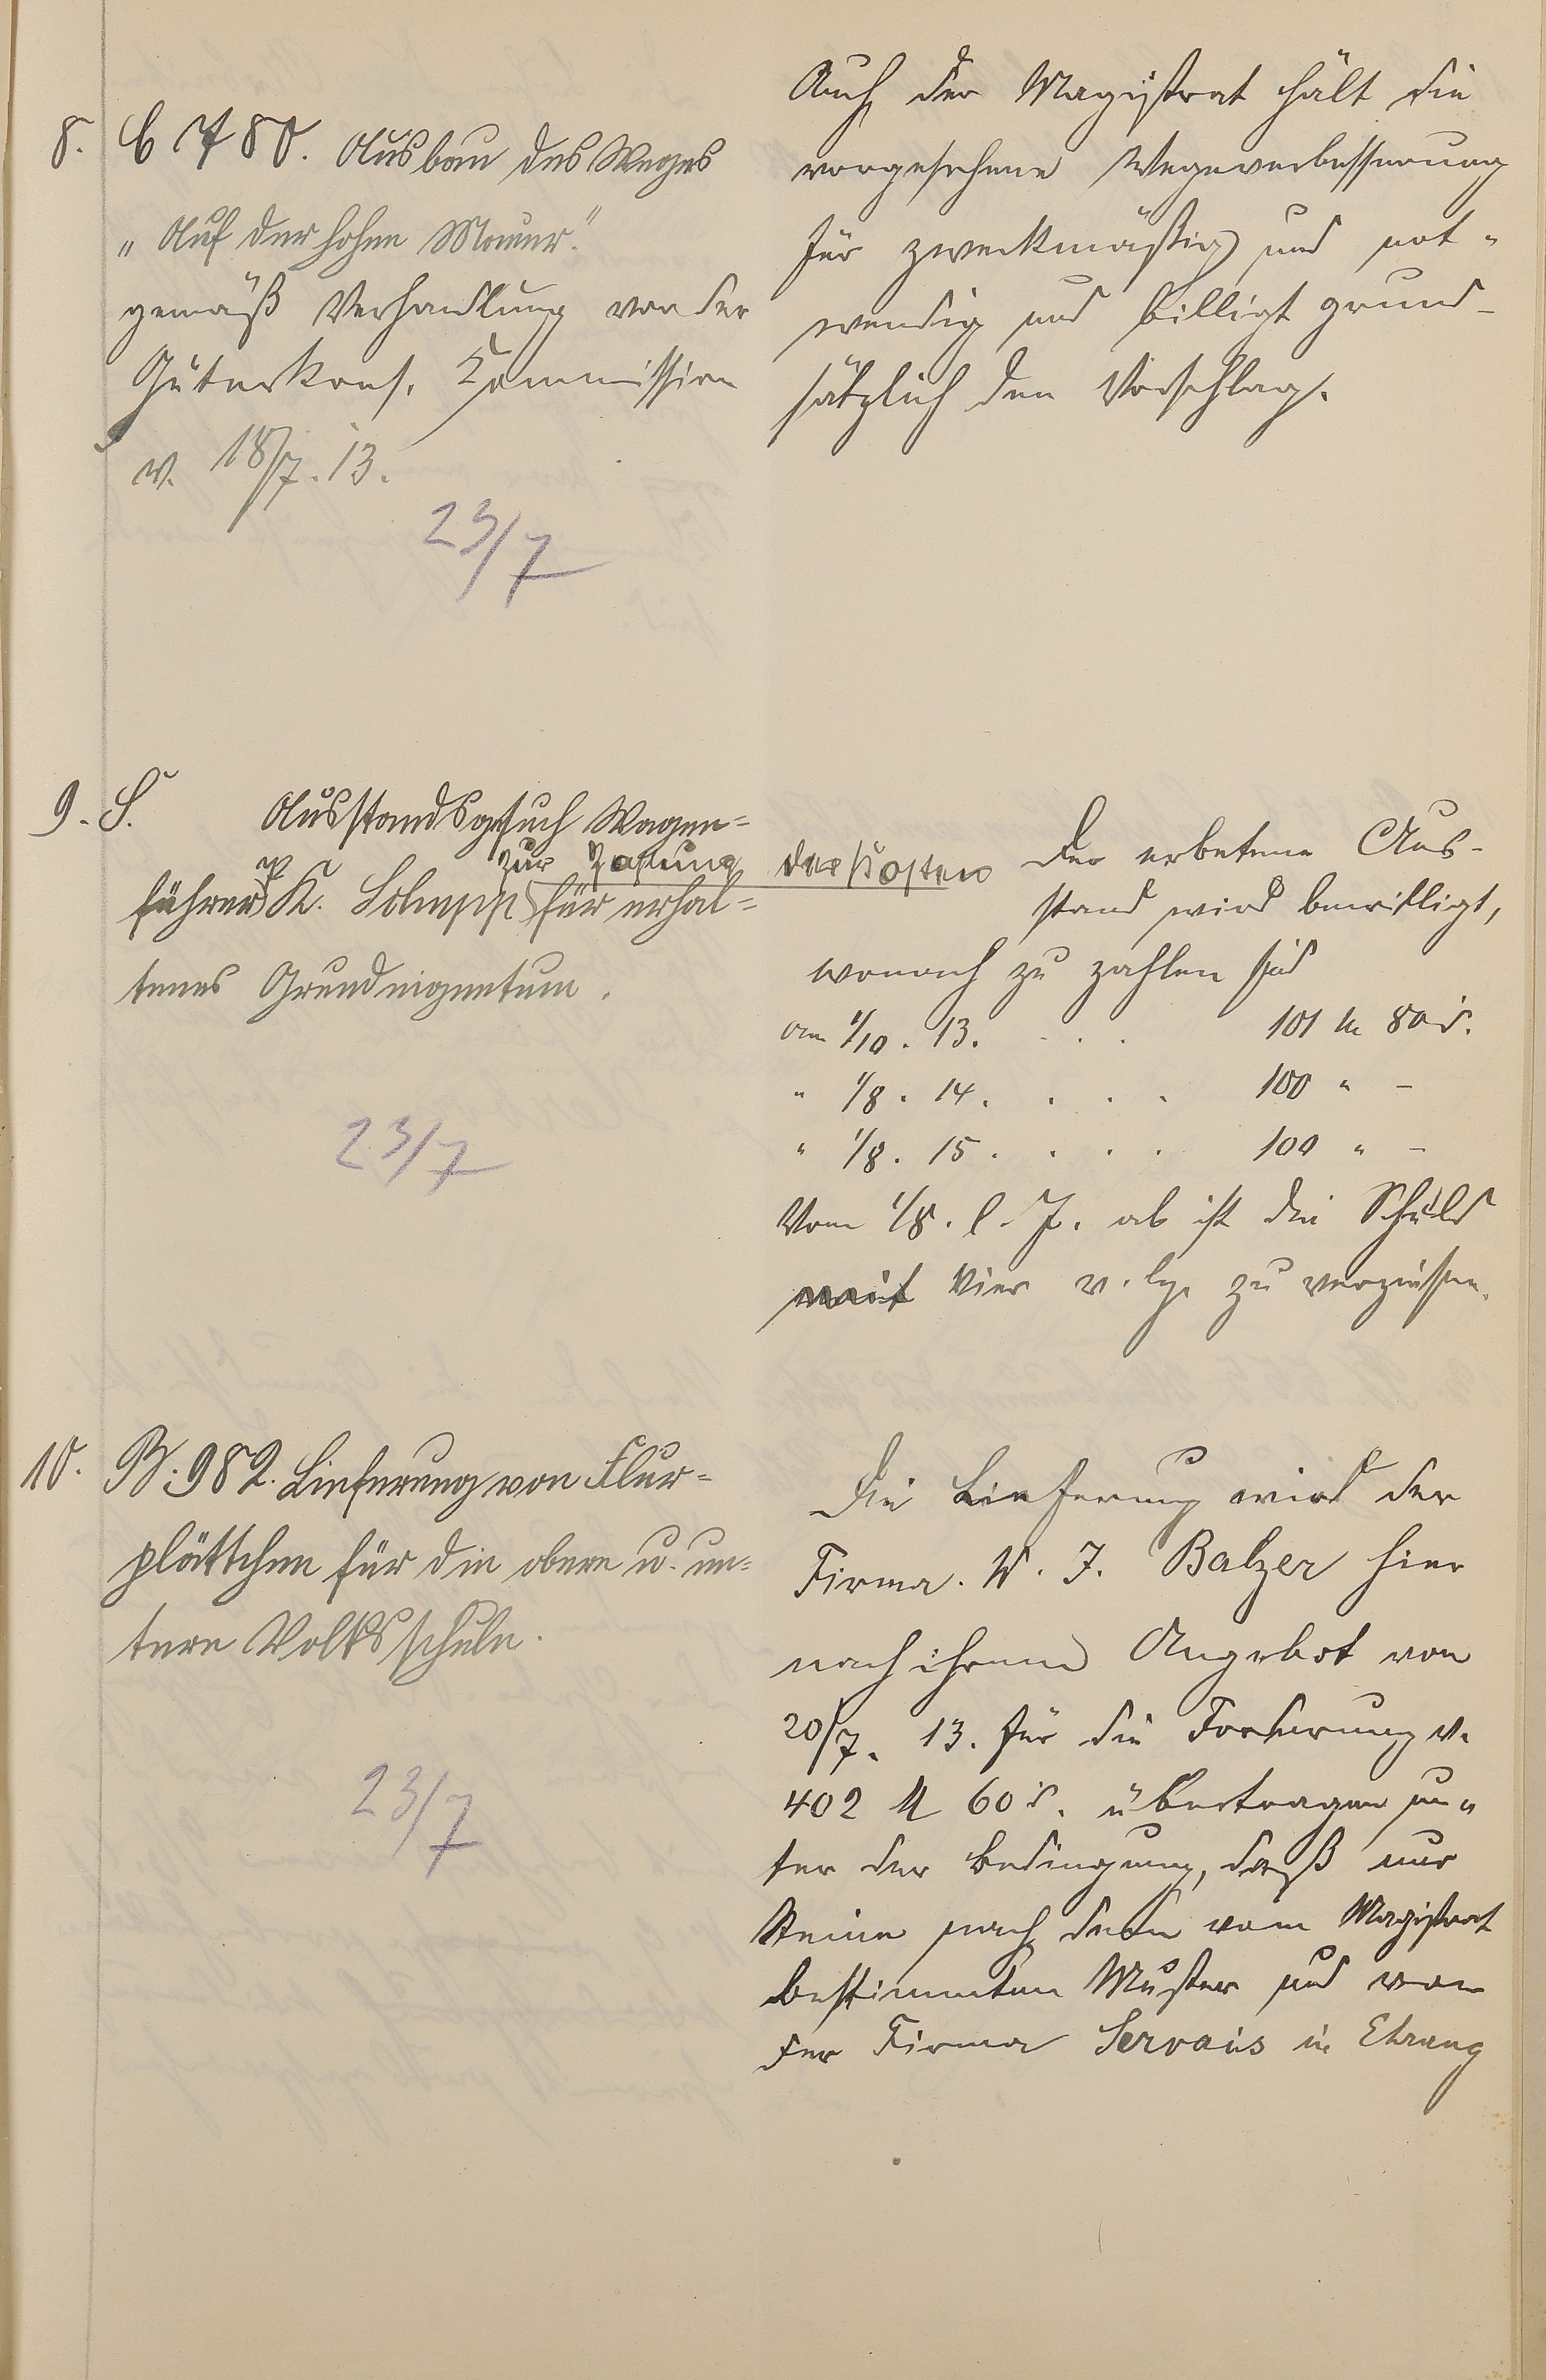 8. C 780. Ausbau des Weges
"Auf der hohen Mauer."
gemäß Verhandlung von der
Güterkons. Kommission
v. 18/7. 13.
23/7
Auch der Magistrat hält die
vorgesehene Wegeverbesserung
für zweckmäßig und not-
wendig und billigt grund-
sätzlich den Vorschlag.
9. S. Ausstandsgesuch Wagen-
zur Zahlung der Kosten
führer K. für erhal-
tenes Grundeigentum.
23/7
Der erbetene Aus-
stand wird bewilligt,
wonach zu zahlen sind
am 1/10. 13. . . . 101 M 80 d.
" 1/8. 14. . . . 100 " –
" 1/8. 15. . . . 100 " –
Vom 1/8. l. J. ab ist die Schuld
mit vier v. Hg. zu verzinsen.
10. B. 982. Lieferung von Flur-
plättchen für die obere u. un-
tere Volksschule.
23/7
Die Lieferung wird der
Firma W. J. Balzer hier
nach ihrem Angebot von
20/7. 13. für die Forderung v.
402 M 60 d. übertragen un-
ter der Bedingung, daß nur
Steine nach dem vom Magistrat
bestimmten Muster und von
der Firma Servais in Ehrang